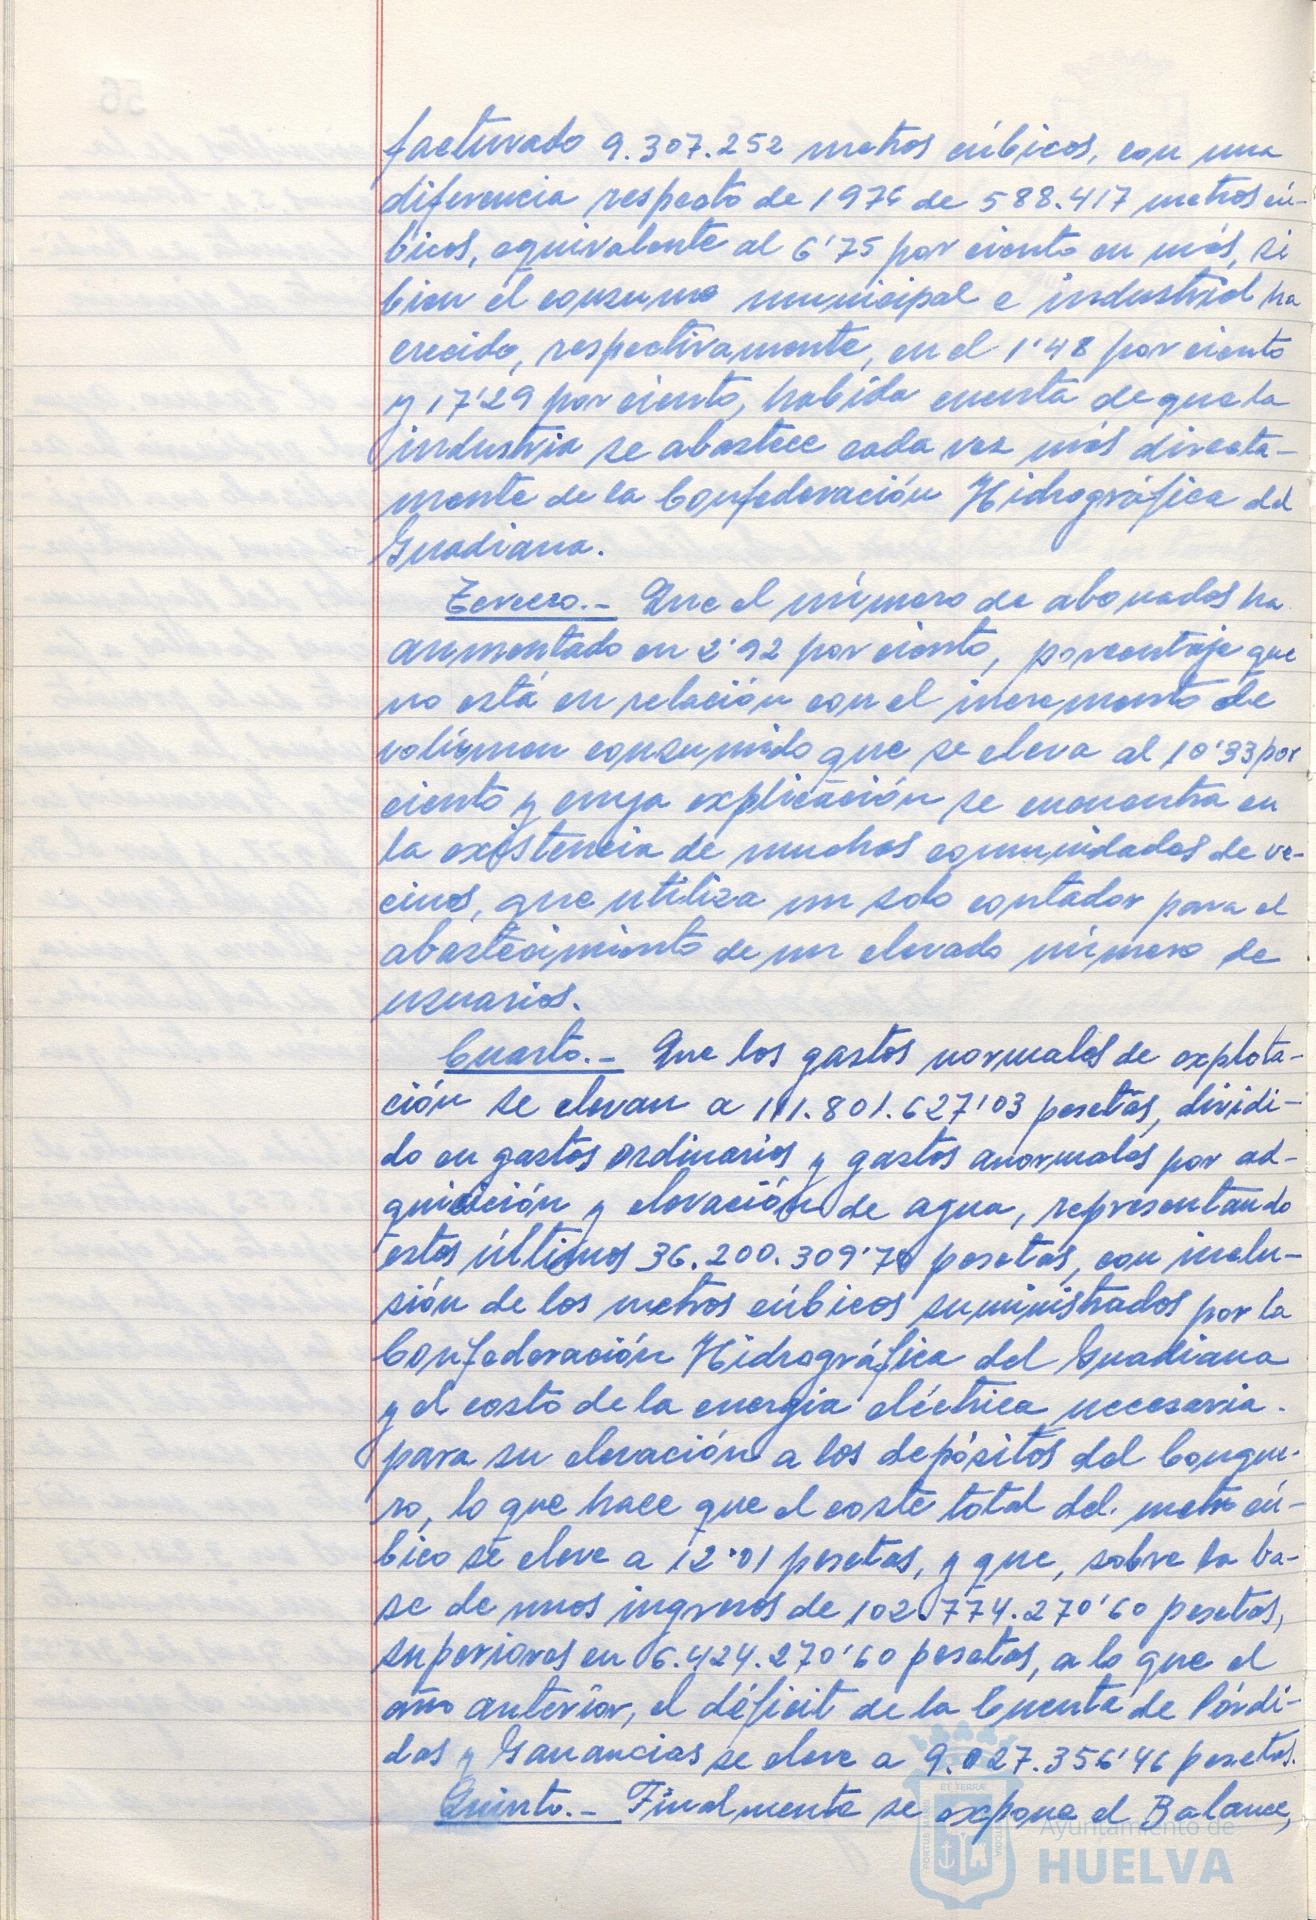 facturado 9.307.252 metros cúbicos, con una
diferencia respecto de 1976 de 588.417 metros cú-
bicos, equivalente al 6'75 por ciento en más, si
bien el consumo municipal e industrial ha
crecido, respectivamente, en el 1'48 por ciento
y 17'29 por ciento, habida cuenta de que la
industria se abastece cada vez más directa-
mente de la Confederación Hidrográfica del
Guadiana.
Tercero.- Que el número de abonados ha
aumentado en 2'92 por ciento, porcentaje que
no está en relación con el incremento de
volúmen consumido que se eleva al 10'33 por
ciento y cuya explicación se encuentra en
la existencia de muchas comunidades de ve-
cinos, que utiliza un solo contador para el
abastecimiento de un elevado número de
usuarios.
Cuarto.- Que los gastos normales de explota-
ción se elevan a 111.801.627'03 pesetas, dividi-
do en gastos ordinarios y gastos anormales por ad-
quisición y elevación de agua, representando
estos últimos 36.200.309'70 pesetas, con inclu-
sión de los metros cúbicos suministrados por la
Confederación Hidrográfica del Guadiana
y el costo de la energía eléctrica necesaria.
para su elevación a los depósitos del Conque-
ro, lo que hace que el coste total del metro cú-
bico se eleve a 12'01 pesetas, y que, sobre la ba-
se de unos ingresos de 102.774.270'60 pesetas,
superiores en 6.424.270'60 pesetas, a lo que el
año anterior, el déficit de la Cuenta de Pérdi-
das y Ganancias se eleve a 9.027.356'46 pesetas.
Quinto.- Finalmente se expone el Balance,
ET TERRÆ
PORTUS MARIS
CUSTODIA
Ayuntamiento de
HUELVA
56